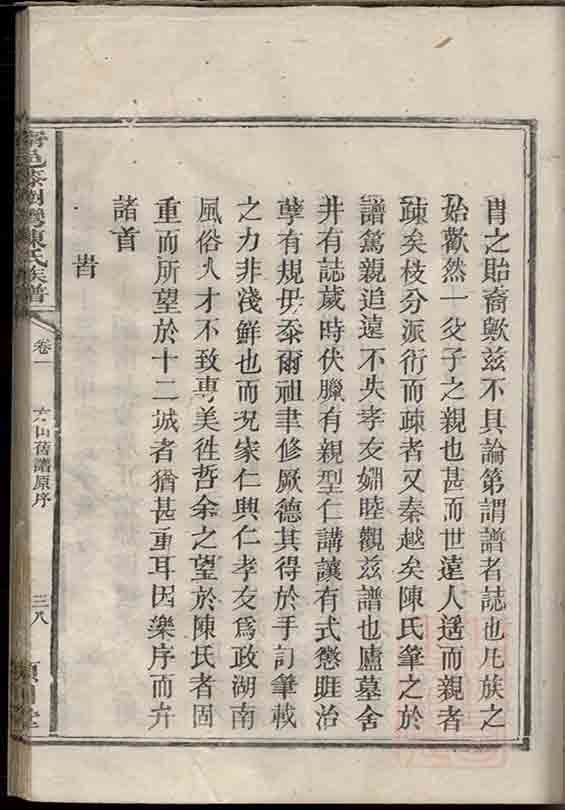 胄之貽裔歟茲不具論第謂譜者誌也凡族之
始歡然一父子之親也甚而世遠人遥而親者
疎矣枝分派衍而疎者又秦越矣陳氏筆之於
譜篤親追遠不失孝友婣睦觀茲譜也廬墓舍
井有誌歲時伏臘有親型仁講讓有式懲睚治
孽有規毋忝爾祖聿修厥德其得於手訂筆載
之力非淺鮮也而況家仁興仁孝友為政湖南
風俗人才不致專美徃哲余之望於陳氏者固
重而所望於十二誠者猶甚重耳因樂序而弁
諸首
旹
陳氏族譜
卷一
舊譜原序
三八
堂